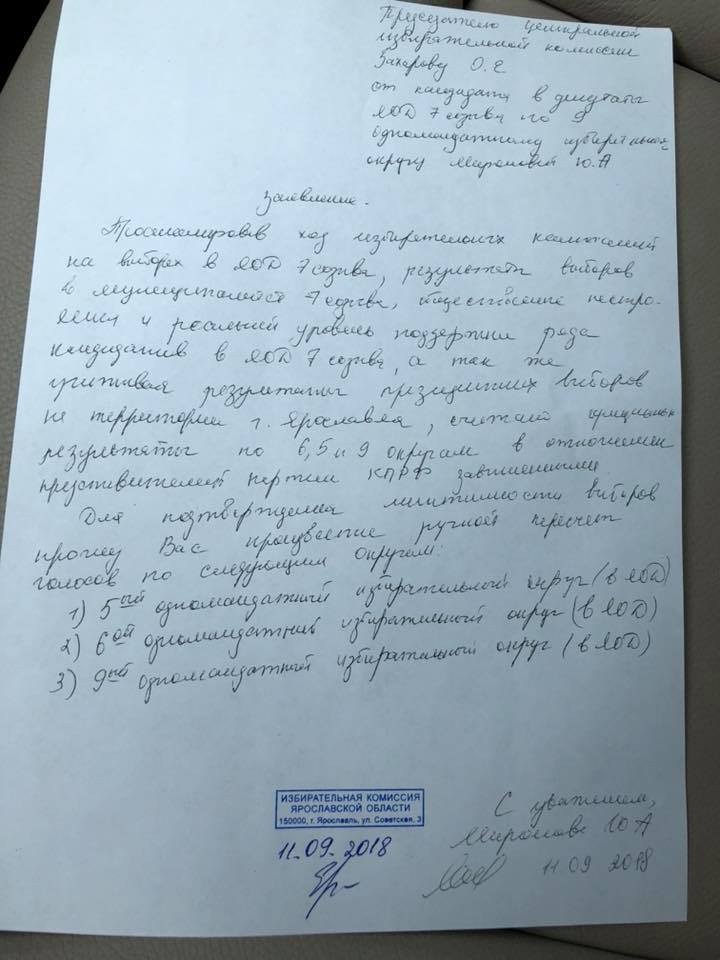 Председателю центральной
избирательной комиссии
Захарову О.Е
от кандидата в депутаты
ЯОД 7 созыва по 9
одномандатному избирательному
округу Мироновой Ю.А
Заявление.
Проанализировав ход избирательных кампаний
на выборах в ЯОД 7 созыва, результаты выборов
в муниципалитет 7 созыва, общественные настро-
ения и реальный уровень поддержки ряда
кандидатов в ЯОД 7 созыва, а так же
учитывая результаты президентских выборов
на территории г. Ярославля, считаю
результаты по 6, 5 и 9 округам в отношении
представителей партии КПРФ завышенными.
Для подтверждения легитимности выборов
прошу Вас произвести ручной пересчет
голосов по следующим округам:
1) 5ый одномандатный избирательный округ (в ЯОД)
2) 6ой одномандатный избирательный округ (в ЯОД)
3) 9ый одномандатный избирательный округ (в ЯОД)
ИЗБИРАТЕЛЬНАЯ КОМИССИЯ
ЯРОСЛАВСКОЙ ОБЛАСТИ
150000, г. Ярославль, ул. Советская, 3
11.09.2018
С уважением,
Миронова Ю А
11 09 2018